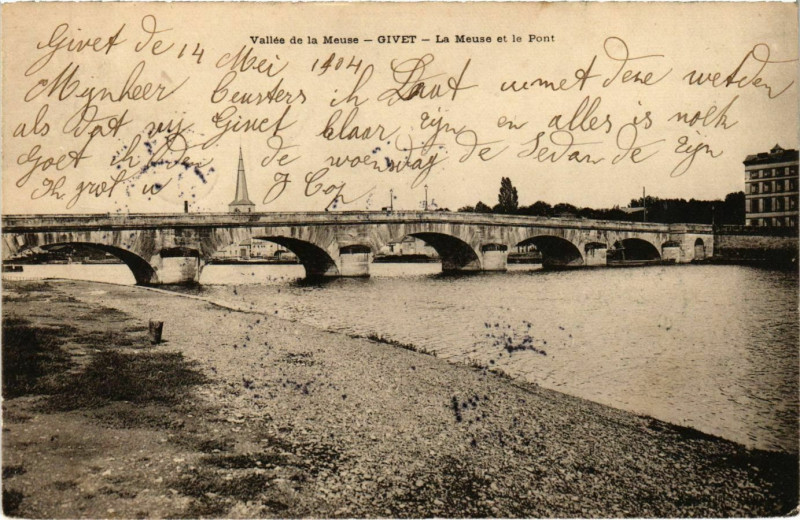 Vallée de la Meuse — GIVET — La Meuse et le Pont
Givet de 14 Mei 1904
Mynheer Ceusters ik Laat u met dese wetden
als dat wij Givet klaar zyn en alles is nolh
goet ik de woensdag de Sedan de zyn
Ik groet u J Cop